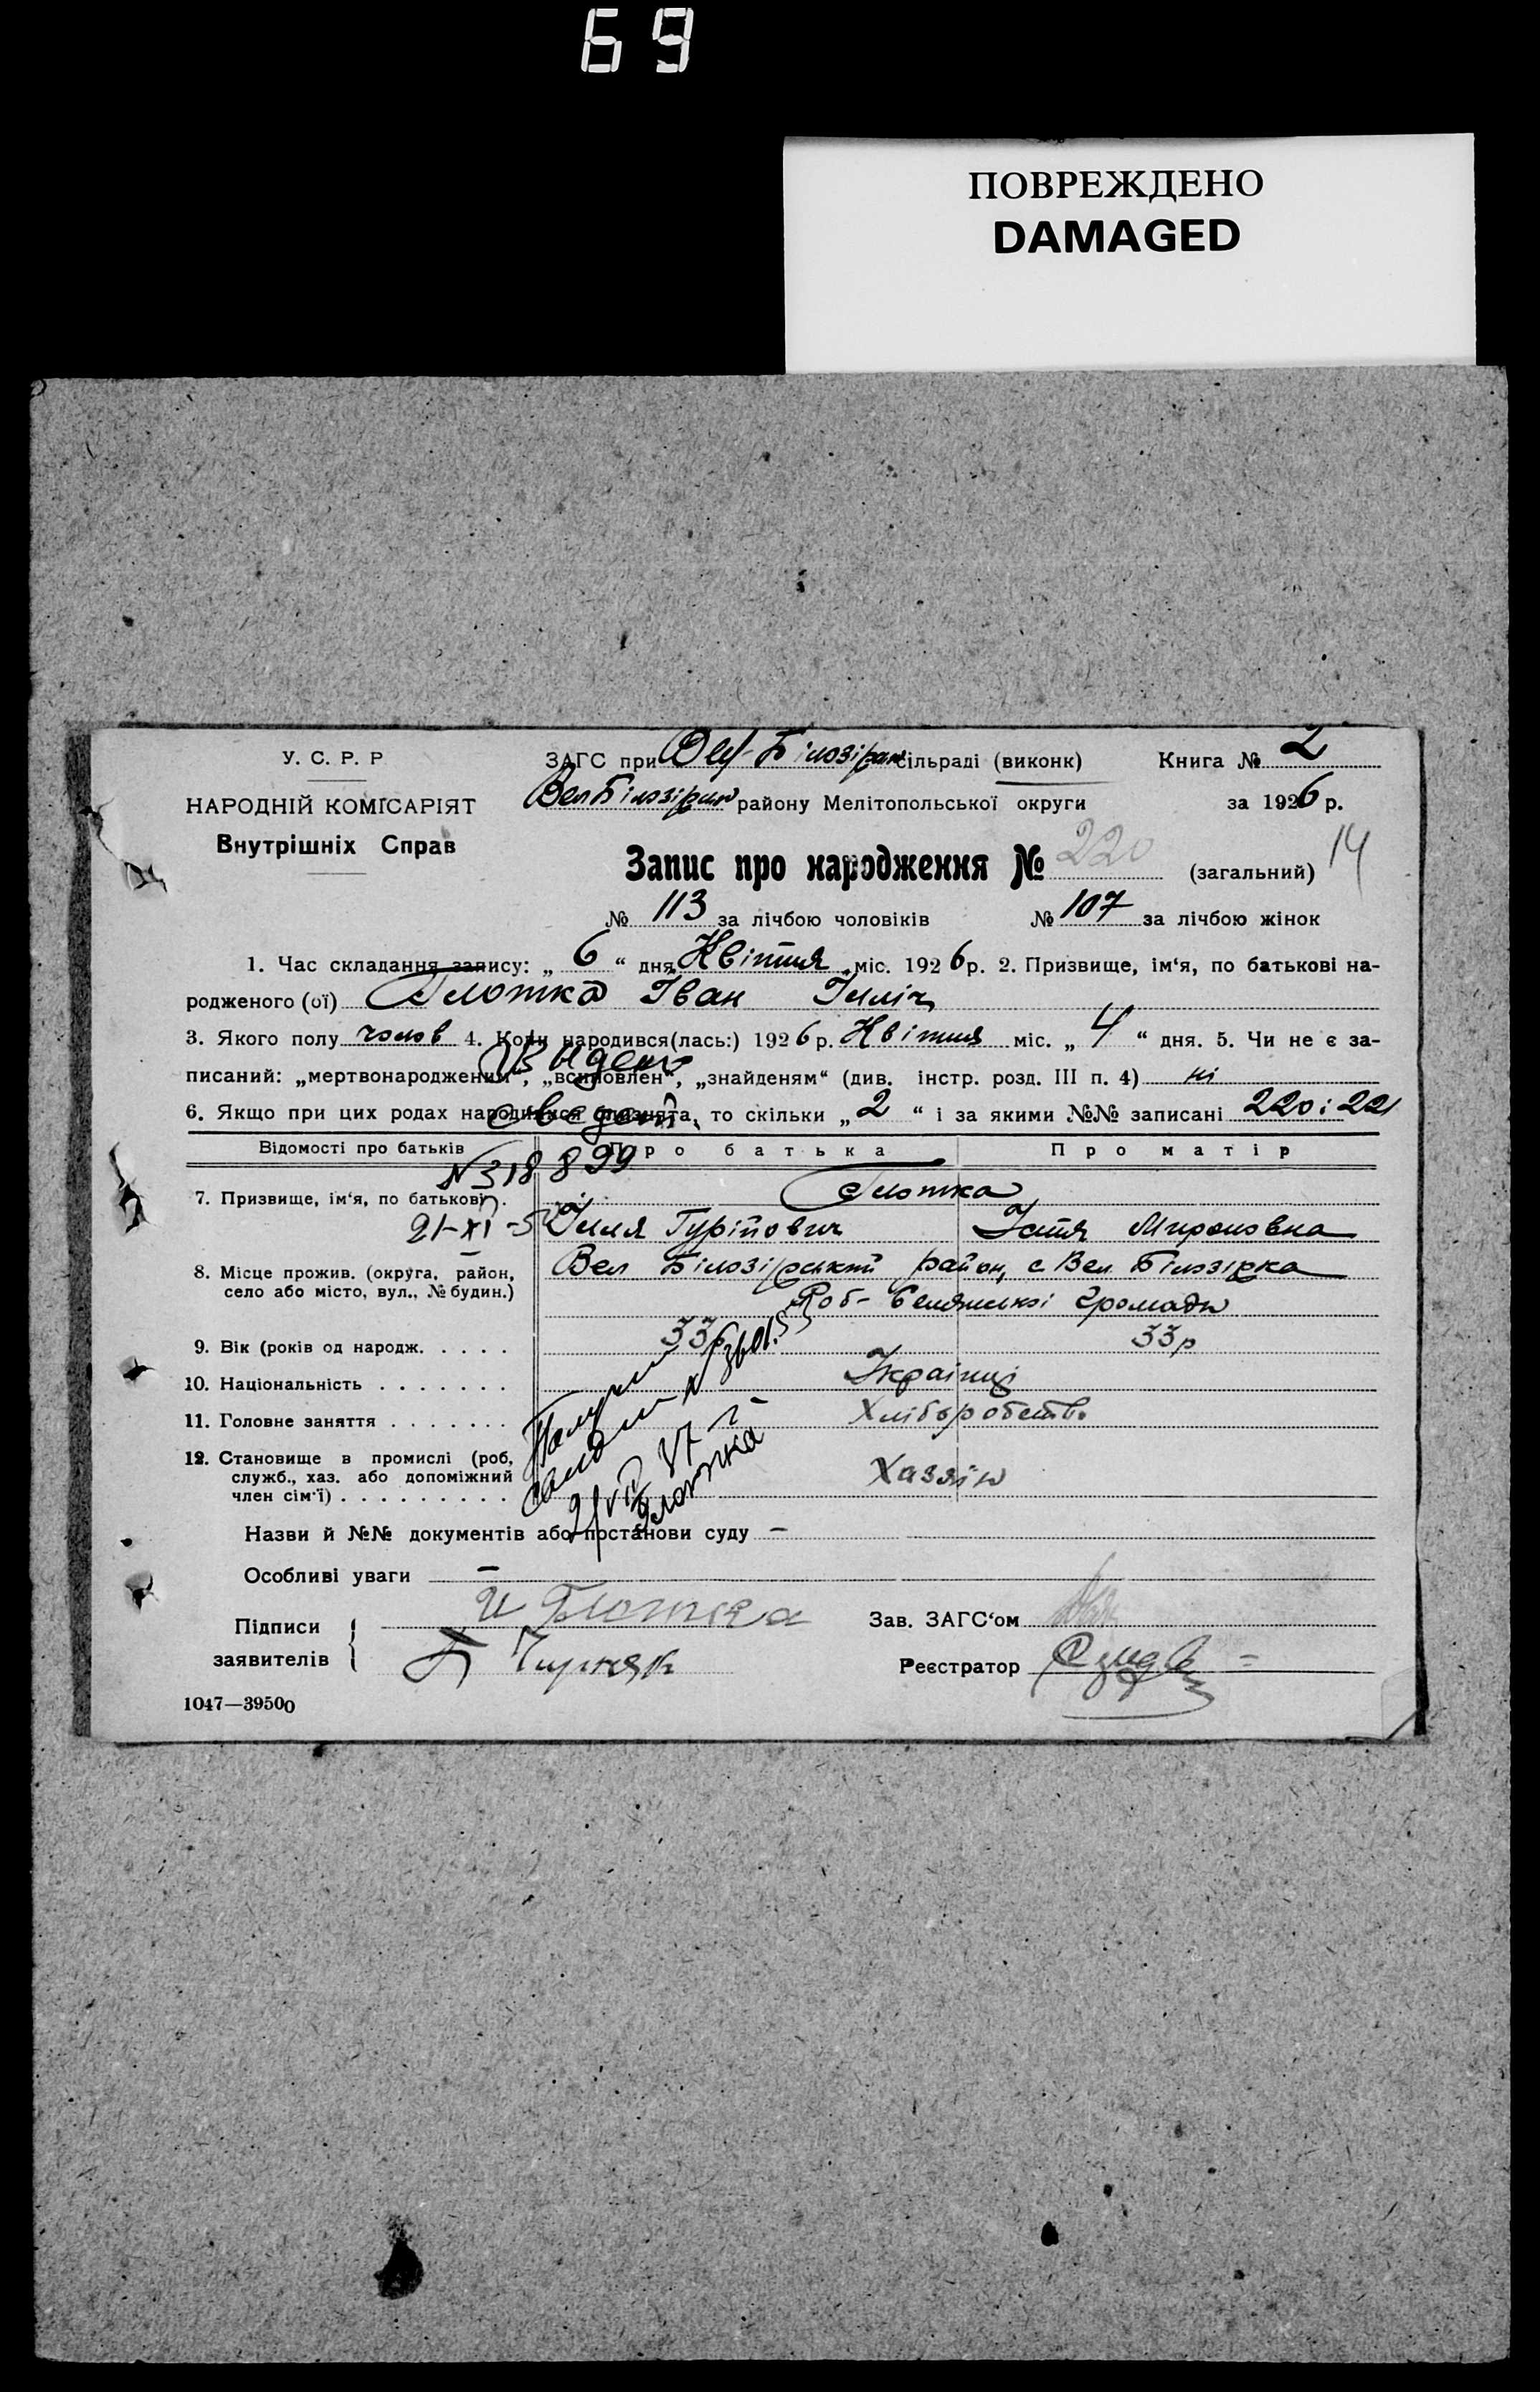 69
ПОВРЕЖДЕНО
DAMAGED
У. С. Р. Р
НАРОДНІЙ КОМІСАРІЯТ
Внутрішніх Справ
ЗАГС при Білозірск сільраді (виконк)
Книга № 2
Вел Білозірск району Мелітопольської округи
за 1926 р.
Запис про народження № 220 (загальний) 14
№ 113 за лічбою чоловіків № 107 за лічбою жінок
1. Час складання запису: „ 6 “ дня Квітня міс. 1926 р. 2. Призвище, ім‘я, по батькові на-
родженого (ої) Глотка Іван Ілліч
3. Якого полу чолов 4. Коли народився(лась:) 1926 р. Квітня міс. „ 4 “ дня. 5. Чи не є за-
писаний: „мертвонароджений“, „всиновлен“, „знайденям“ (див. інстр. розд. III п. 4) ні
6. Якщо при цих родах народилися близнята, то скільки „ 2 “ і за якими №№ записані 220 і 221
Видано
свидет.
N 318899
21-XI-5
Відомості про батьків
Про батька
Про матір
7. Призвище, ім‘я, по батькові .
Глотка
Ілля Гурійович
Мироновна
8. Місце прожив. (округа, район,
село або місто, вул., № будин.)
Вел Білозірський район, с Вел Білозірка
Роб-Селянської громади
9. Вік (років од народж. . . . .
33р
33р
10. Національність . . . . . . .
Українці
11. Головне заняття . . . . . . .
Хліборобство
12. Становище в промислі (роб,
служб., хаз. або допоміжний
член сім‘ї) . . . . . . . . .
Хазяін
Глотка
Назви й №№ документів або постанови суду –
Особливі уваги –
Підписи
заявителів
И Глотка
Зав. ЗАГС‘ом
Реєстратор
1047—39500